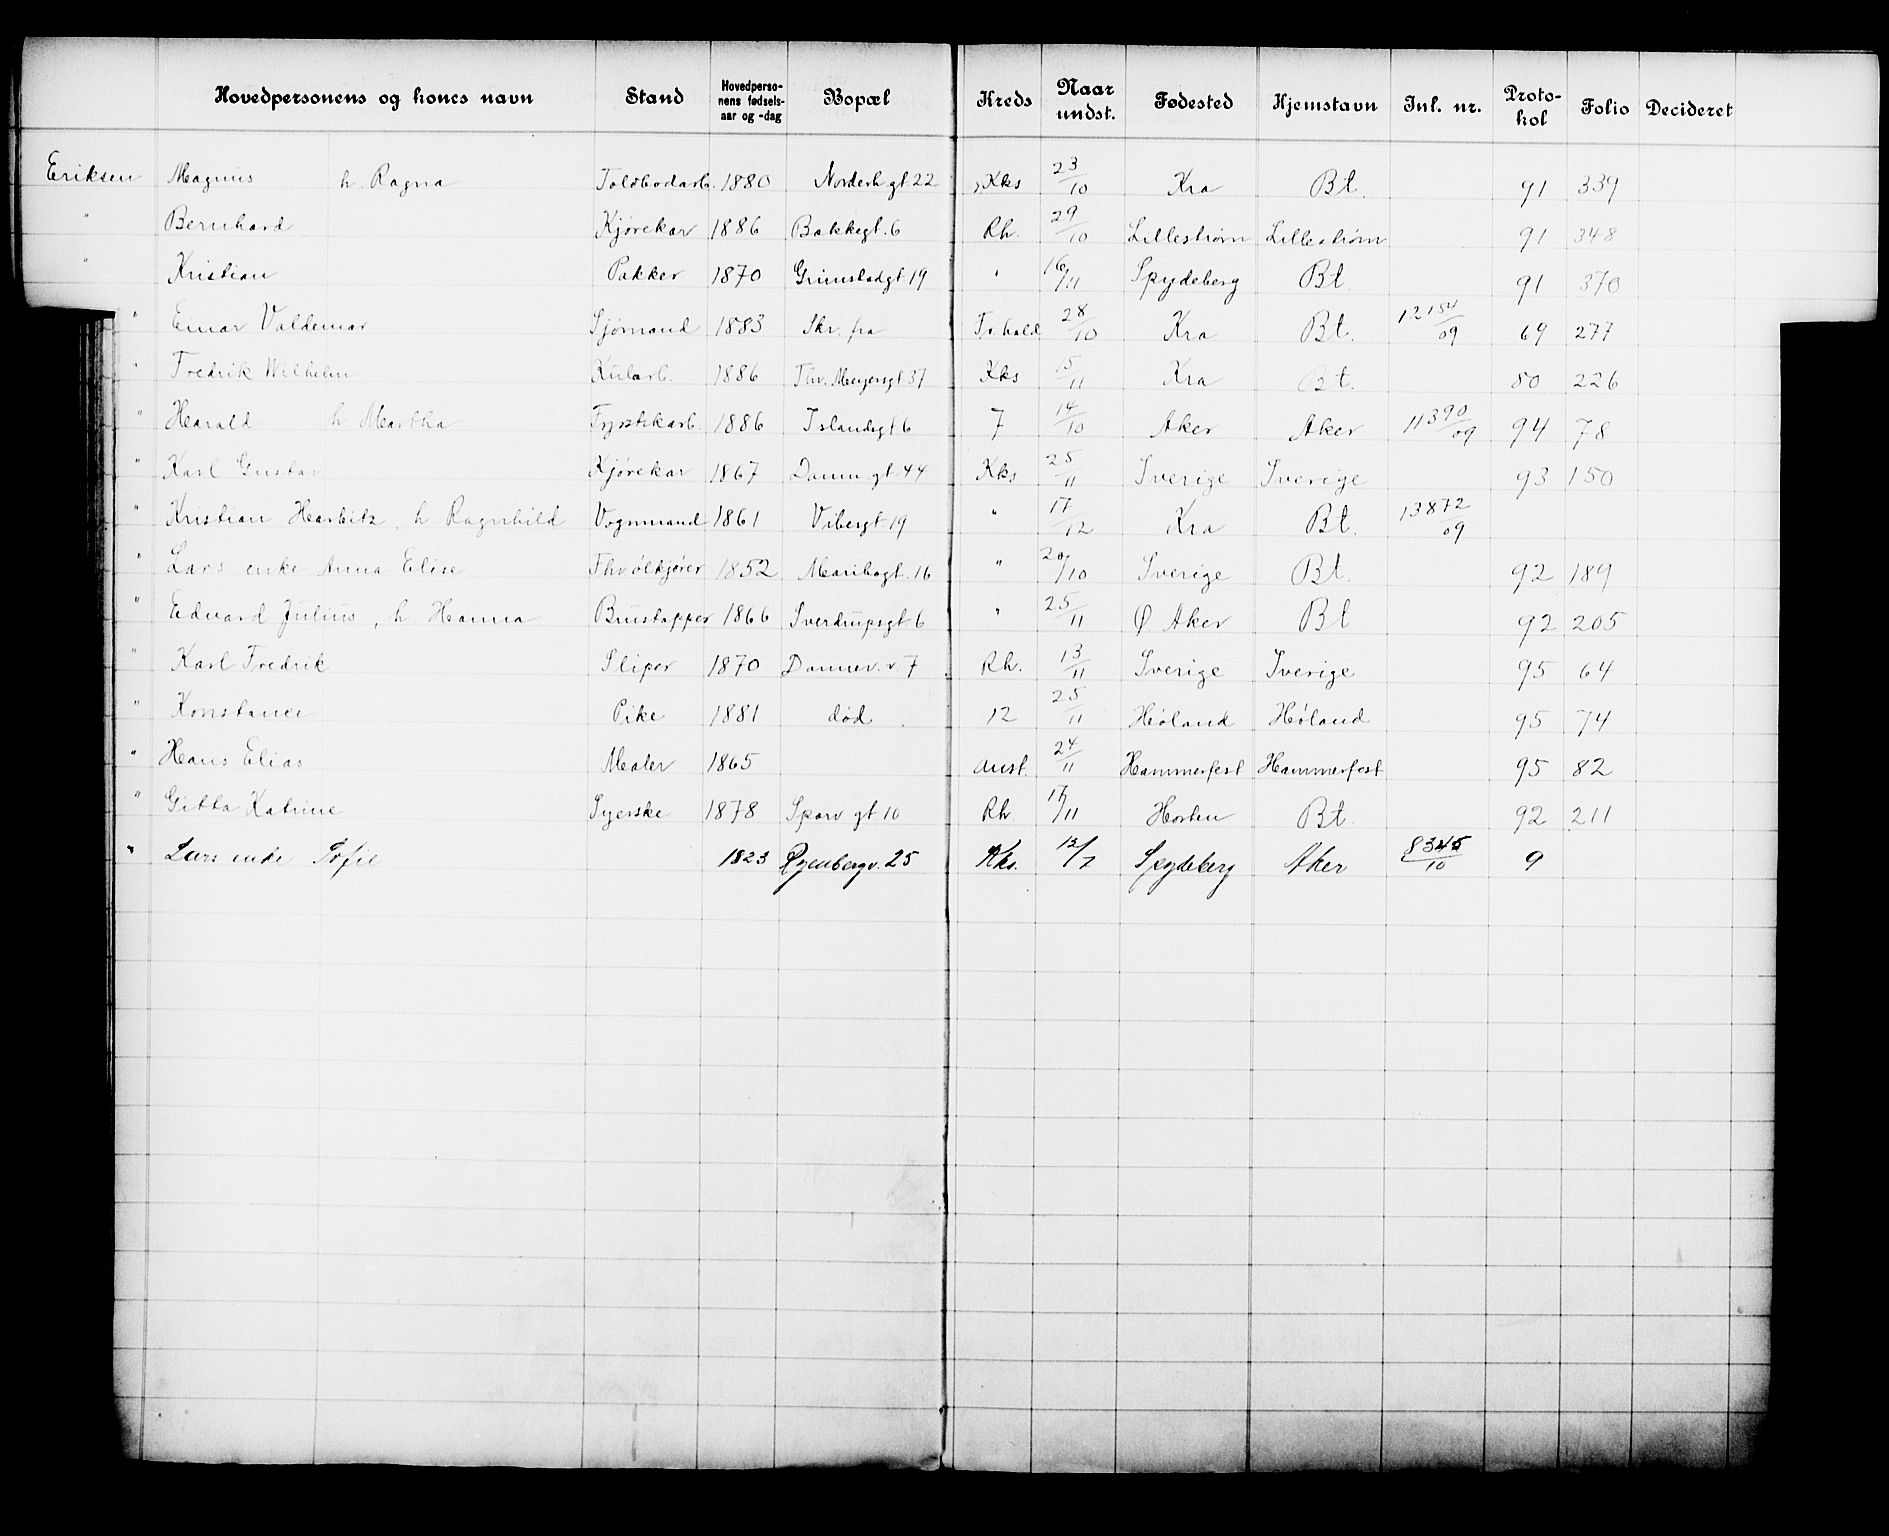 Hovedpersonens og kones navn Stand Hovedpersonens fødselsaar og -dag Bopæl Kreds Naar undst. Fødested Hjemstavn Inl. nr. Protokol Folio Decideret
Eriksen Magnus h. Ragna Toldbodarb. 1880 Norderh.gt 22 Kks 23/10 Kra Bt. 91 339
" Bernhard Kjørekar 1886 Bakkegt. 6 Rh. 29/10 Lillestrøm Lillestrøm 91 348
" Kristian Pakker 1870 Grimstadgt 19 " 16/11 Spydeberg Bt. 91 370
" Einar Valdemar Sjømand 1883 Skr. fra Fr.hald 28/10 Kra Bt. 12154/09 69 277
" Fredrik Wilhelm Kularb. 1886 Thv. Meyersgt 37 Kks 15/11 Kra Bt. 80 226
" Harald h Martha Fyrstikarb. 1886 Islandsgt 6 7 14/10 Aker Aker 11390/09 94 78
" Karl Gustav Kjørekar 1867 Danm.gt 44 Kks 25/11 Sverige Sverige 93 150
" Kristian Harbitz, h Ragnhild Vognmand 1861 Vibesgt 19 " 17/12 Kra Bt. 13872/09
" Lars enke Anna Elise Fhv.ølkjører 1852 Maribogt. 16 " 20/10 Sverige Bt. 92 189
" Edvard Julius, h Hanna Brustapper 1866 Sverdrupsgt 6 " 25/11 Ø Aker Bt 92 205
" Karl Fredrik Sliper 1870 Dannev. v. 7 Rh. 13/11 Sverige Sverige 95 64
" Konstance Pike 1881 død 12 25/11 Høland Høland 95 74
" Hans Elias Maler 1865 anst. 24/11 Hammerfest Hammerfest 95 82
" Gitta Katrine Syerske 1878 Sparv gt 10 Rh. 17/11 Horten Bt. 92 211
" Lars enke Sofie 1823 Øgenbergv. 25 Kks. 12/7 Spydeberg Aker 8345/10 9